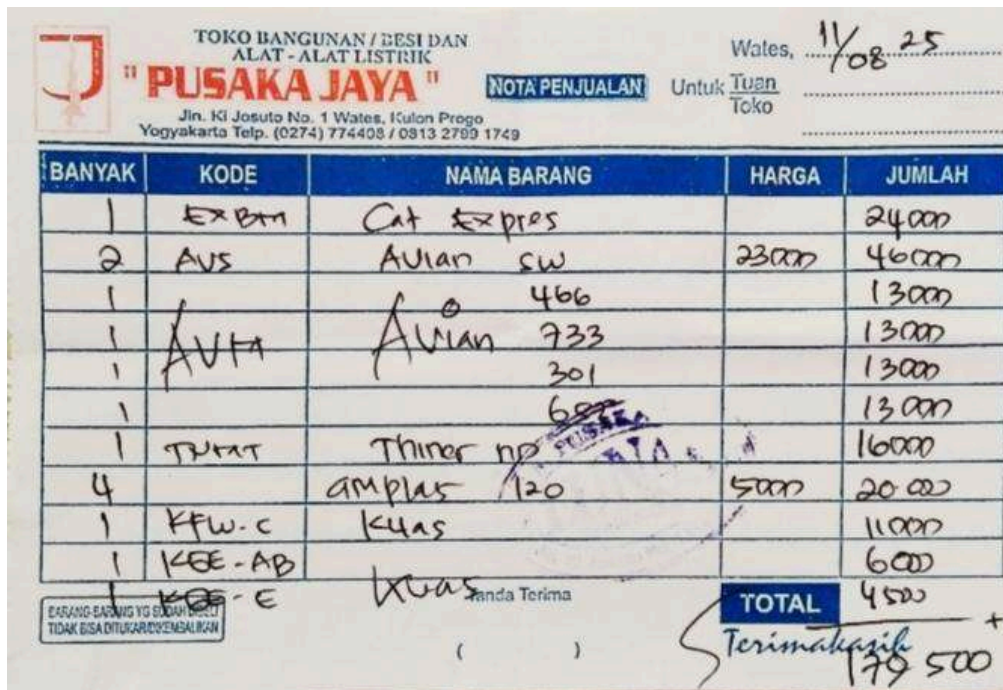 TOKO BANGUNAN / BESI DAN
ALAT - ALAT LISTRIK
" PUSAKA JAYA "
Jln. Ki Josuto No. 1 Wates, Kulon Progo
Yogyakarta Telp. (0274) 774408 / 0813 2799 1749
NOTA PENJUALAN
Wates, 11/08 25
Untuk Tuan
Toko
BANYAK KODE NAMA BARANG HARGA JUMLAH
1 EXBM Cat Expres 24000
2 AVS Avian SW 23000 46000
1 466 13000
1 Avian 733 13000
1 301 13000
1 13000
1 Thiner np 16000
4 amplas 120 5000 20000
1 KFW-C Kuas 11000
1 KGE-AB 6000
1 KGE-E Kuas 4500
BARANG-BARANG YG SUDAH DIBELI
TIDAK BISA DITUKAR/DIKEMBALIKAN
Tanda Terima
( )
TOTAL
Terimakasih
179 500
PUSAKA